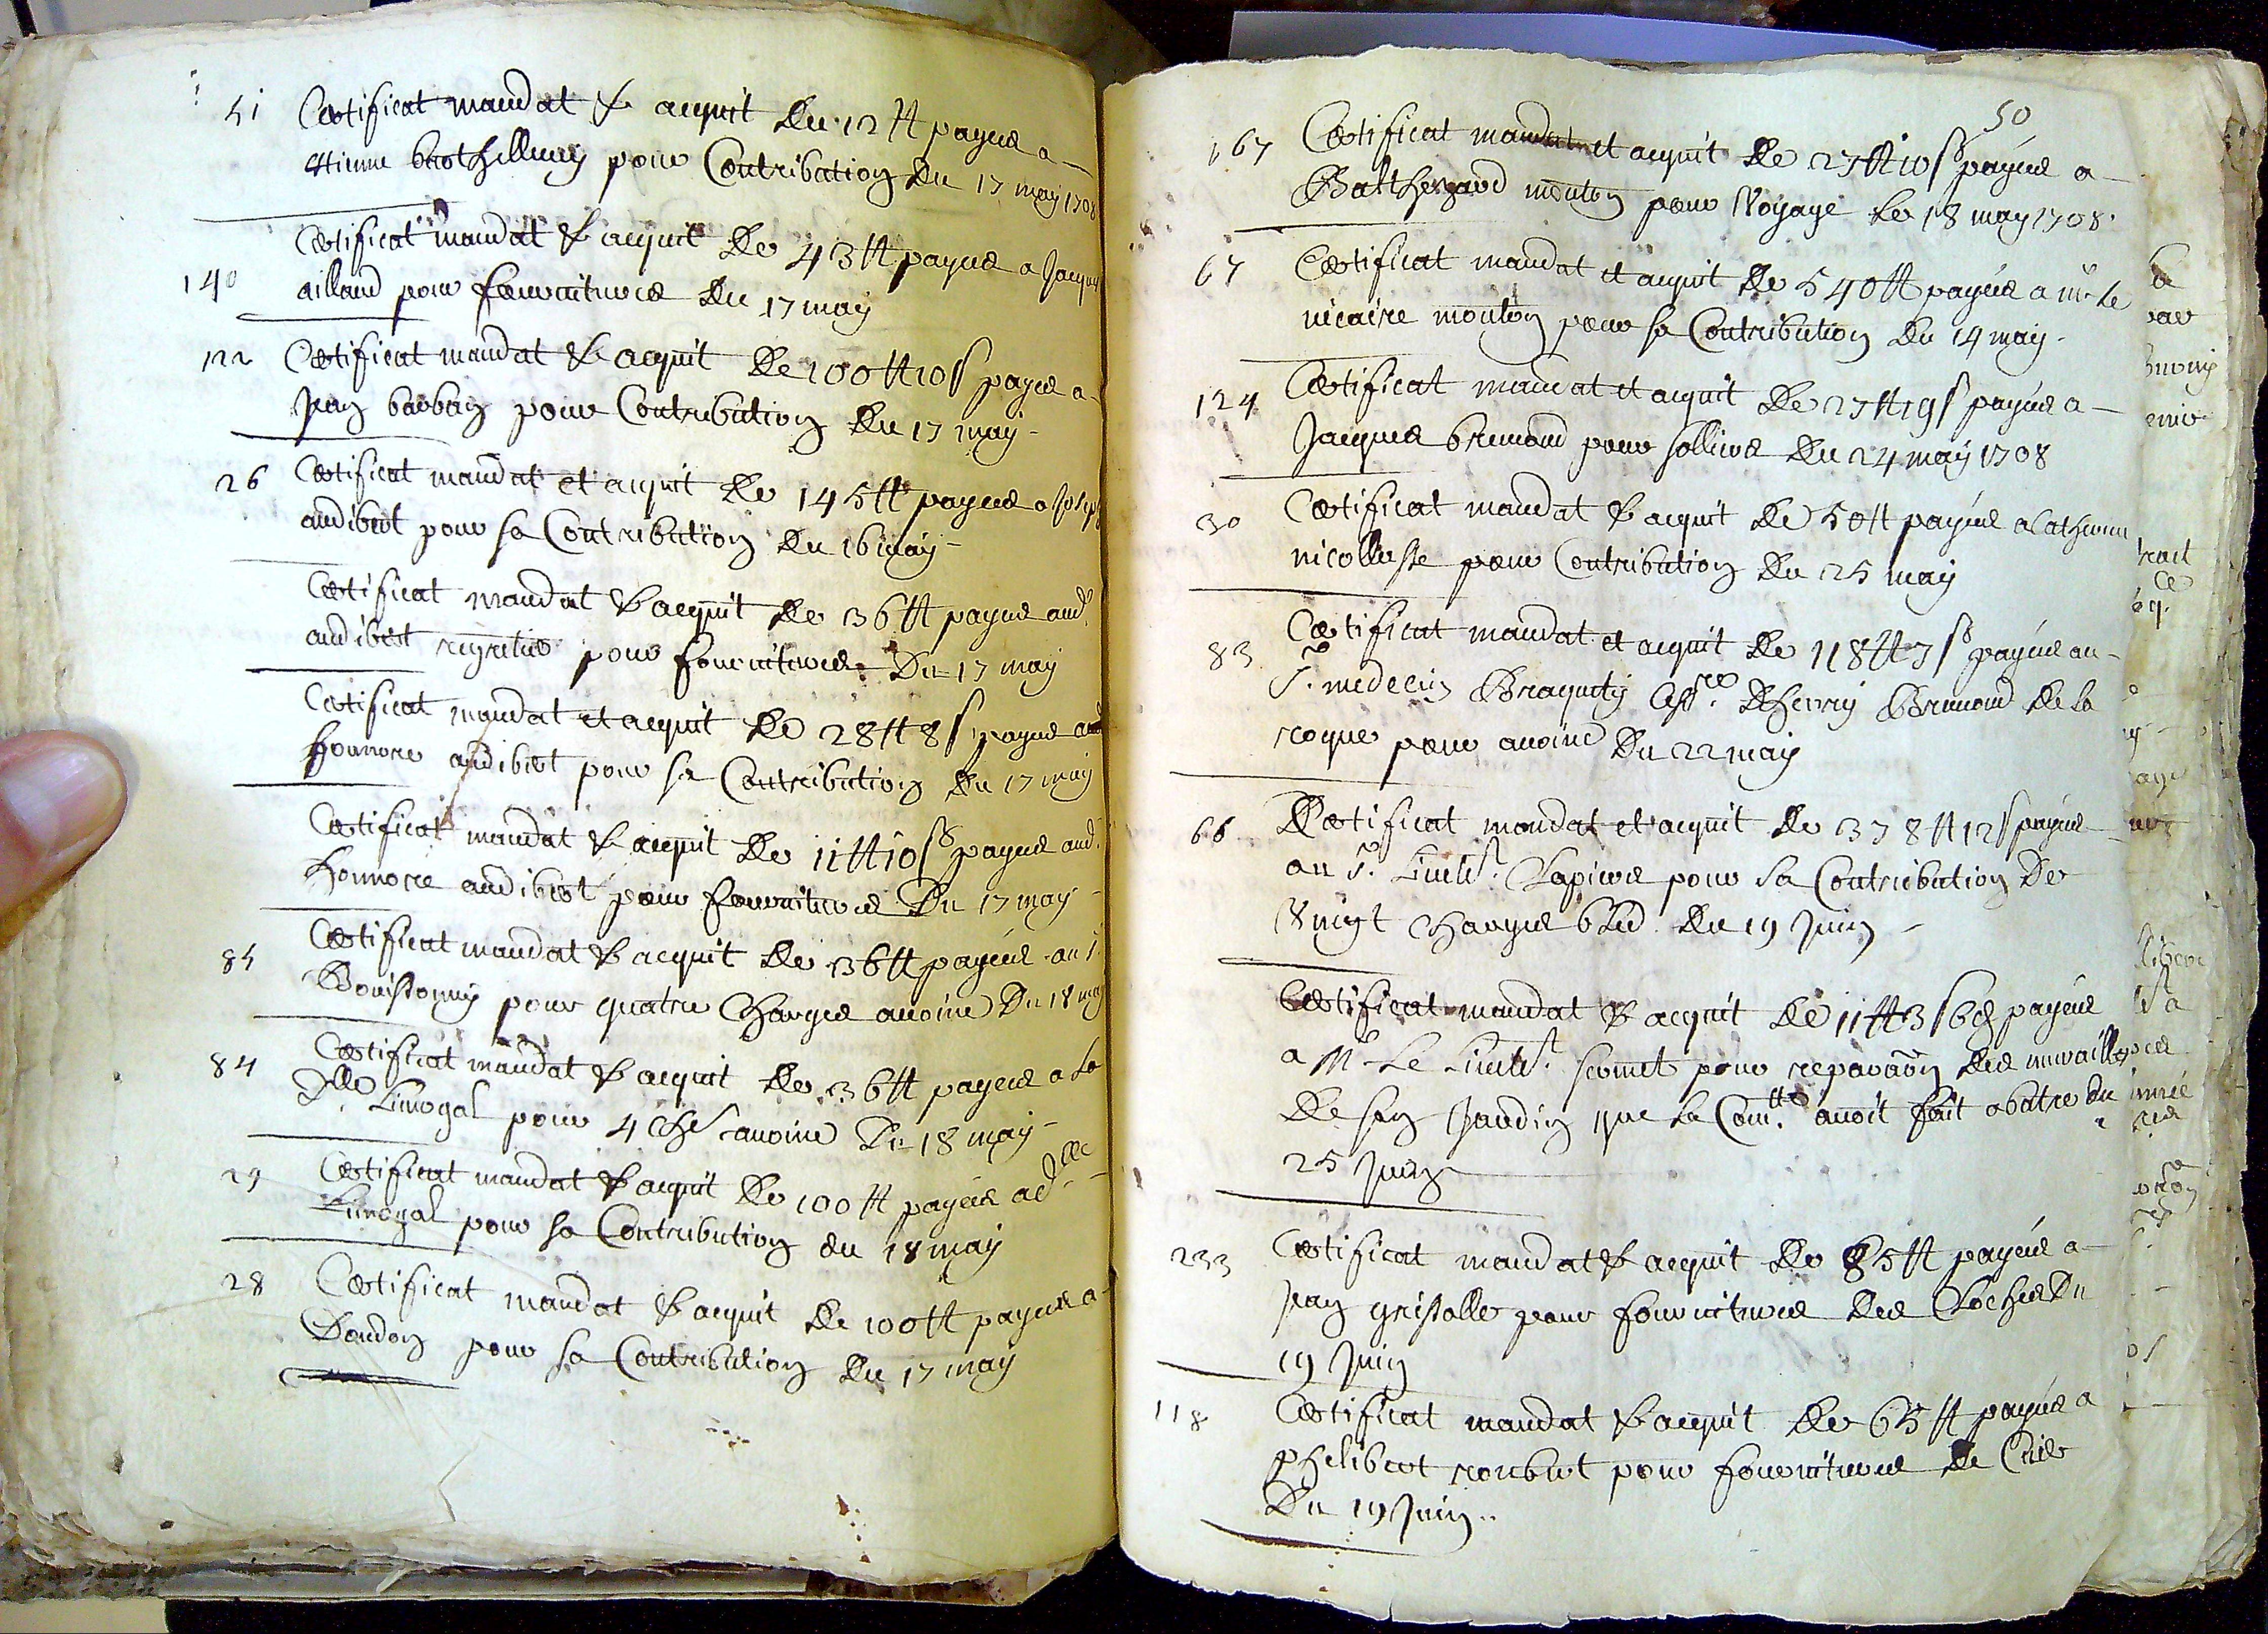 51 Certificat mandat & acquit du 12 ₶ payées a
Estienne barthellemy pour Contribution du 17 may 1708
Certificat mandat & acquit de 43 ₶ payées a Jacques
140 ailland pour fournitures du 17 may
122 Certificat mandat & acquit de 100 ₶ 10 s payées a
Jean barban pour Contribution du 17 may
26 Certificat mandat et acquit de 145 ₶ payées a Joseph
audibert pour sa Contribution du 16 may
Certificat mandat & acquit de 36 ₶ payées aud.
audibert pour fournitures du 17 may
Certificat mandat et acquit de 28 ₶ 8 s payées aud
honnore audibert pour sa Contribution du 17 may
Certificat mandat & acquit de 11 ₶ 10 s payées aud.
honnore audibert pour fournitures du 17 may
85 Certificat mandat & acquit de 36 ₶ payées au s.
pour quatre charges avoine du 18 may
84 Certificat mandat & acquit de 36 ₶ payées a la
Dlle. Limogal pour 4 chs avoine du 18 may
29 Certificat mandat & acquit de 100 ₶ payées a dlle
Limogal pour sa Contribution du 18 may
28 Certificat mandat & acquit de 100 ₶ payées a
Dandon pour sa Contribution du 17 may
50
167 Certificat mandat et acquit de 27 ₶ 10 s payées a
Balthezard mouton pour Voyage le 18 may 1708
67 Certificat mandat et acquit de 540 ₶ payées a mr. le
vicaire mouton pour sa Contribution du 14 may
124 Certificat mandat et acquit de 27 ₶ 19 s payées a
Jacques bremond pour solliers du 24 may 1708
30 Certificat mandat & acquit de 50 ₶ payées a Catherine
nicollasse pour Contribution du 25 may
83 Certificat mandat et acquit de 118 ₶ 7 s payées au
Sr. medecin Braquety dhenry Bremond de la
roque pour avoine du 22 may
66 Certificat mandat et acquit de 378 ₶ 12 s payées
au Sr. Lieutt. Lapierre pour sa Contribution de
Vingt charges bled du 19 Juin
Certificat mandat & acquit de 11 ₶ 3 s 6 d payées
a Mr. Le Lieutt. pour reparaon des murailles
de son Jardin que la Comtté. avoit fait abatre du
25 Juin
233 Certificat mandat & acquit de 85 ₶ payées a
Jean grisolle pour fournitures des du
19 Juin
118 Certificat mandat & acquit de 65 ₶ payées a
phelibert roubert pour fournitures de Cuir
Du 19 Juin